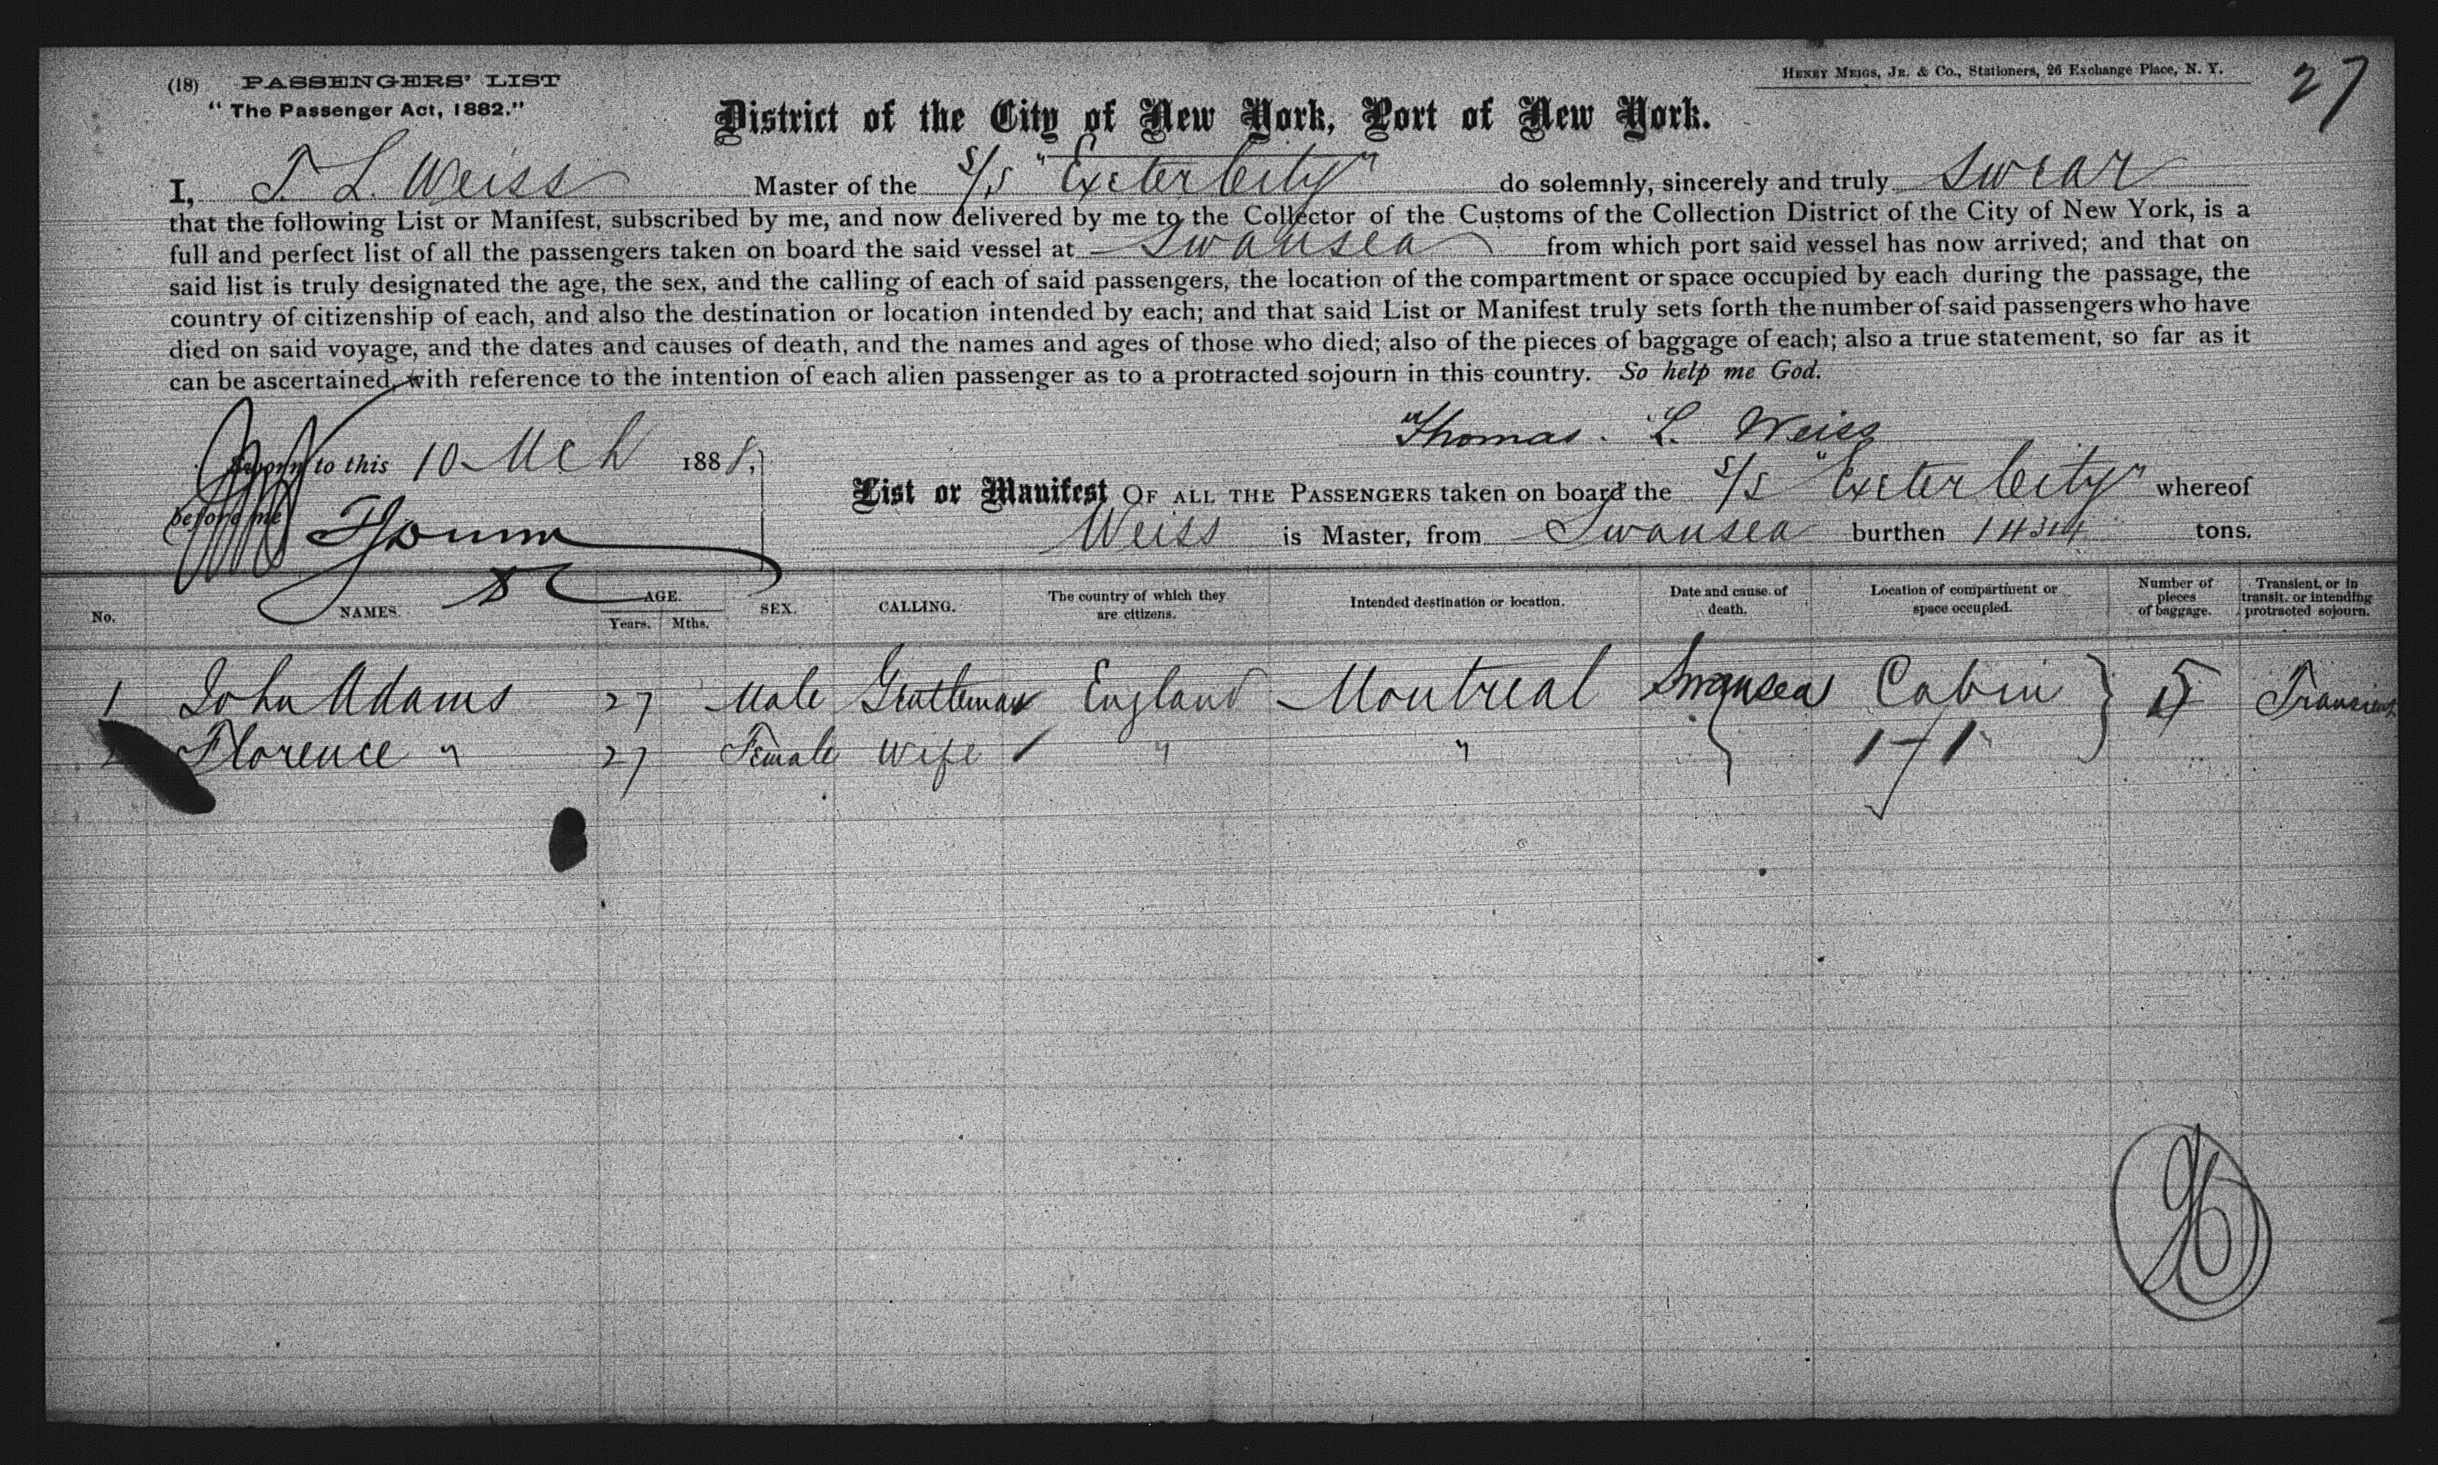 (18) PASSENGERS' LIST
HENRY MEIGS, JR. & Co., Stationers, 26 Exchange Place, N. Y.
27
"The Passenger Act, 1882."
District of the City of New York, Port of New York.
I, T. L. Weiss Master of the S/S "Exeter City" do solemnly, sincerely and truly Swear
that the following List or Manifest, subscribed by me, and now delivered by me to the Collector of the Customs of the Collection District of the City of New York, is a
full and perfect list of all the passengers taken on board the said vessel at Swansea from which port said vessel has now arrived; and that on
said list is truly designated the age, the sex, and the calling of each of said passengers, the location of the compartment or space occupied by each during the passage, the
country of citizenship of each, and also the destination or location intended by each; and that said List or Manifest truly sets forth the number of said passengers who have
died on said voyage, and the dates and causes of death, and the names and ages of those who died; also of the pieces of baggage of each; also a true statement, so far as it
can be ascertained, with reference to the intention of each alien passenger as to a protracted sojourn in this country. So help me God.
Thomas. L. Weiss
Sworn to this 10 Mch 1888,
before me
List or Manifest OF ALL THE PASSENGERS taken on board the S/S "Exeter City" whereof
Weiss is Master, from Swansea burthen tons.
No. NAMES. AGE. Years. Mths. SEX. CALLING. The country of which they are citizens. Intended destination or location. Date and cause of death. Location of compartment or space occupied. Number of pieces of baggage. Transient, or in transit, or intending protracted sojourn.
1 John Adams 27 Male Gentleman England Montreal Swansea Cabin } 5 Transient
2 Florence " 27 Female Wife / " " 1 + 1
96